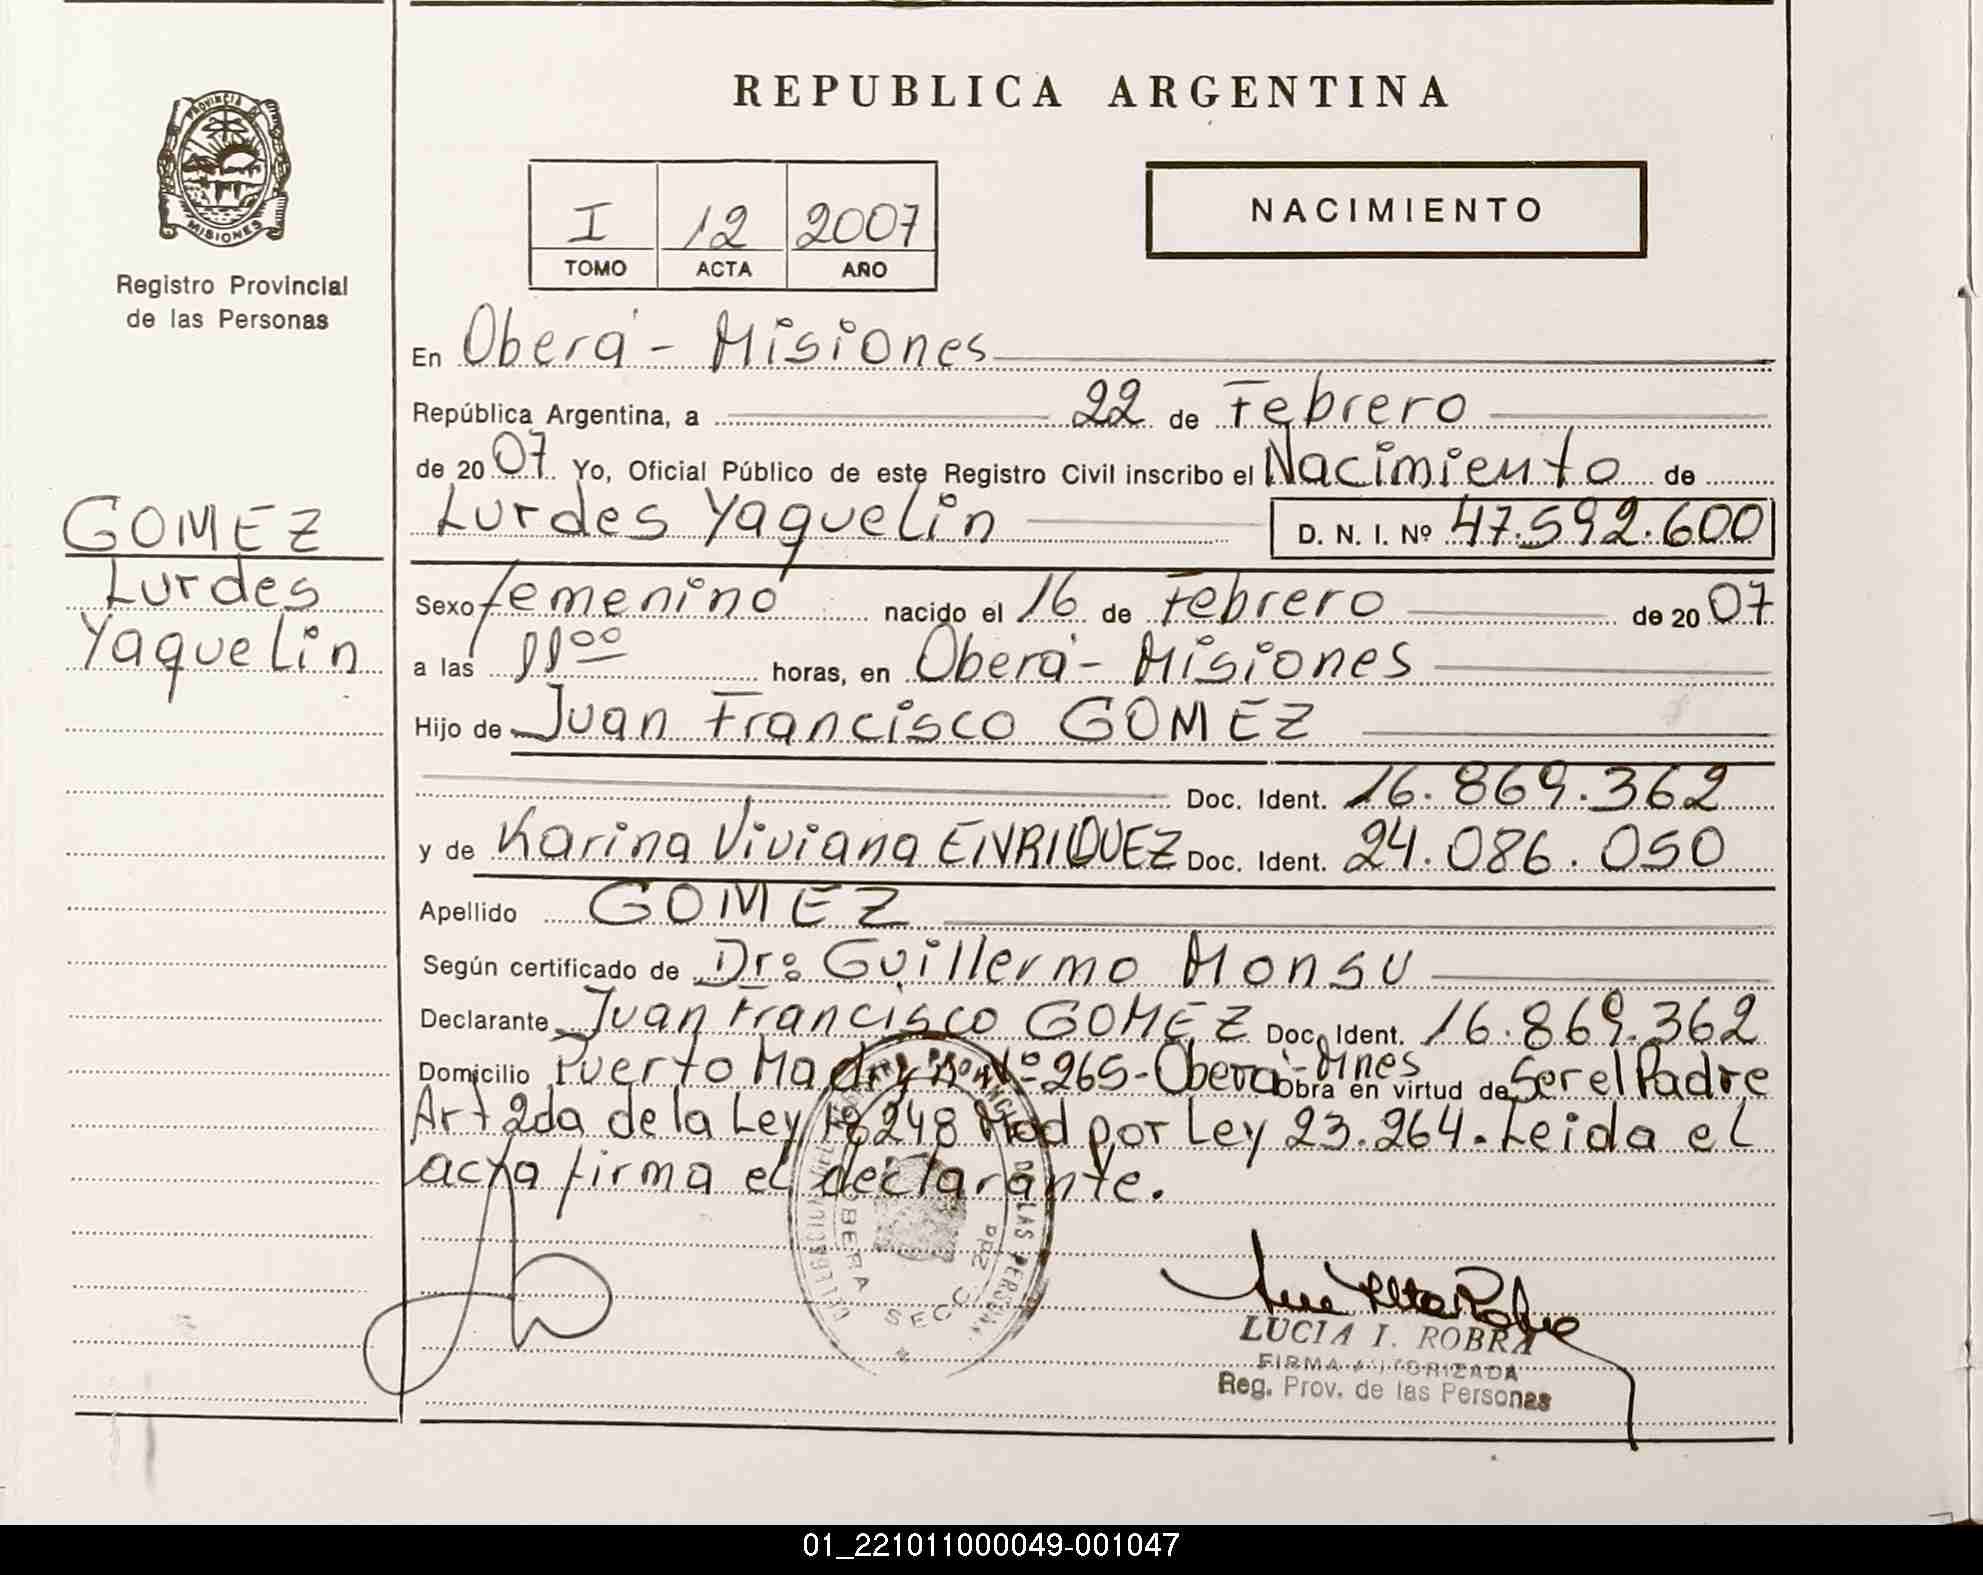 REPUBLICA ARGENTINA
PROVINCIA DE
MISIONES
Registro Provincial
de las Personas
I 12 2007
TOMO ACTA AÑO
NACIMIENTO
GOMEZ
Lurdes
Yaquelin
En Oberá - Misiones
República Argentina, a 22 de Febrero
de 2007 Yo, Oficial Público de este Registro Civil inscribo el Nacimiento de
Lurdes Yaquelin D. N. I. Nº 47.592.600
Sexo femenino nacido el 16 de Febrero de 2007
a las 11⁰⁰ horas, en Oberá - Misiones
Hijo de Juan Francisco GOMEZ
Doc. Ident. 16.869.362
y de Karina Viviana ENRIQUEZ Doc. Ident. 24.086.050
Apellido GOMEZ
Según certificado de Dr: Guillermo Monsu
Declarante Juan Francisco GOMEZ Doc. Ident. 16.869.362
Domicilio Puerto Madryn Nº 265 - Oberá - Mnes obra en virtud de Ser el Padre
Art 2da de la Ley 18248 Mod por Ley 23.264. Leida el
acta firma el declarante.
DE LAS PERSONAS
OBERA SECC. 2da
LUCIA I. ROBRA
FIRMA AUTORIZADA
Reg. Prov. de las Personas
01_221011000049-001047